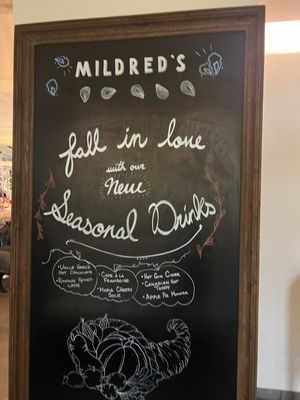 MILDRED'S
fall in love
with our
New
Seasonal Drinks
• Uncle Greg's
Hot Chocolate
• Pumpkin Spiced
Latte
• Cafe à la
Framboise
• Maple Cherry
Sour
• Hot Gin Cider
• Canadian Hot
Toddy
• Apple Pie Mimosa